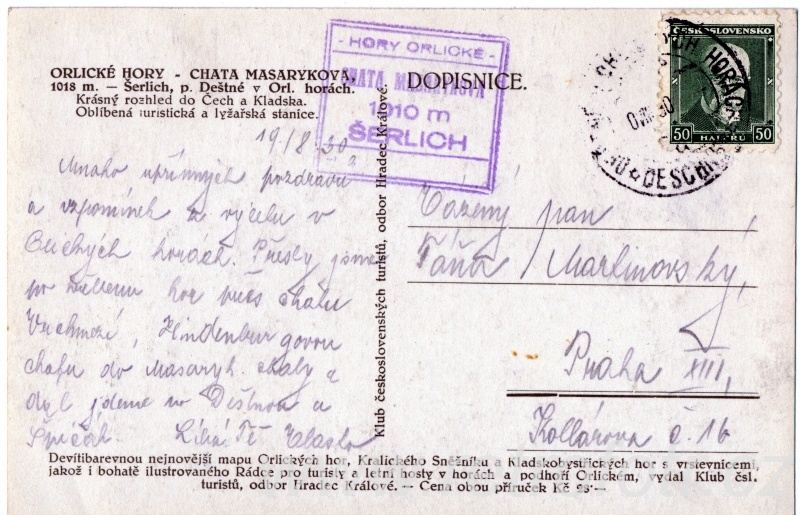 ORLICKÉ HORY - CHATA MASARYKOVA,
1018 m. — Šerlich, p. Deštné v Orl. horách.
Krásný rozhled do Čech a Kladska.
Oblíbená turistická a lyžařská stanice.
- HORY ORLICKÉ -
CHATA MASARYKOVA
1010 m
ŠERLICH
DOPISNICE.
ČESKOSLOVENSKO
50 HALÉŘŮ 50
DESCHN
19/8 30
Mnoho upřímných pozdravů
a vzpomínek z výletu v
Orlických horách. Přešly jsme
po hřebenu hor přes chatu
Hindenburgovou
chatu do Masaryk. chaty a
dál jdeme na Deštnou a
Líbá Tě Vlasta
Vážený pan
Táňa Martinovský,
Praha XIII,
Kollárova č. 16
Klub československých turistů, odbor Hradec Králové.
Devítibarevnou nejnovější mapu Orlických hor, Kralického Sněžníku a Kladskobystřických hor s vrstevnicemi,
jakož i bohatě ilustrovaného Rádce pro turisty a letní hosty v horách a podhoří Orlickém, vydal Klub čsl.
turistů, odbor Hradec Králové. — Cena obou příruček Kč 28·—